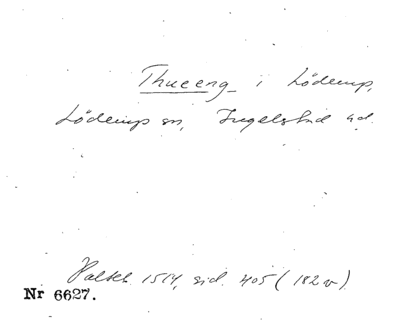 Thuceng i Löderup,
Löderups sn, Ingelstad hd.
Palteb. 1514, sid. 405 (182 v)
Nr 6627.